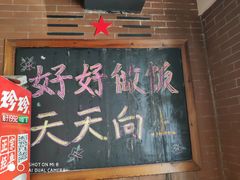 好好做饭
天天向
珍珍
SHOT ON MI 8
AI DUAL CAMERA